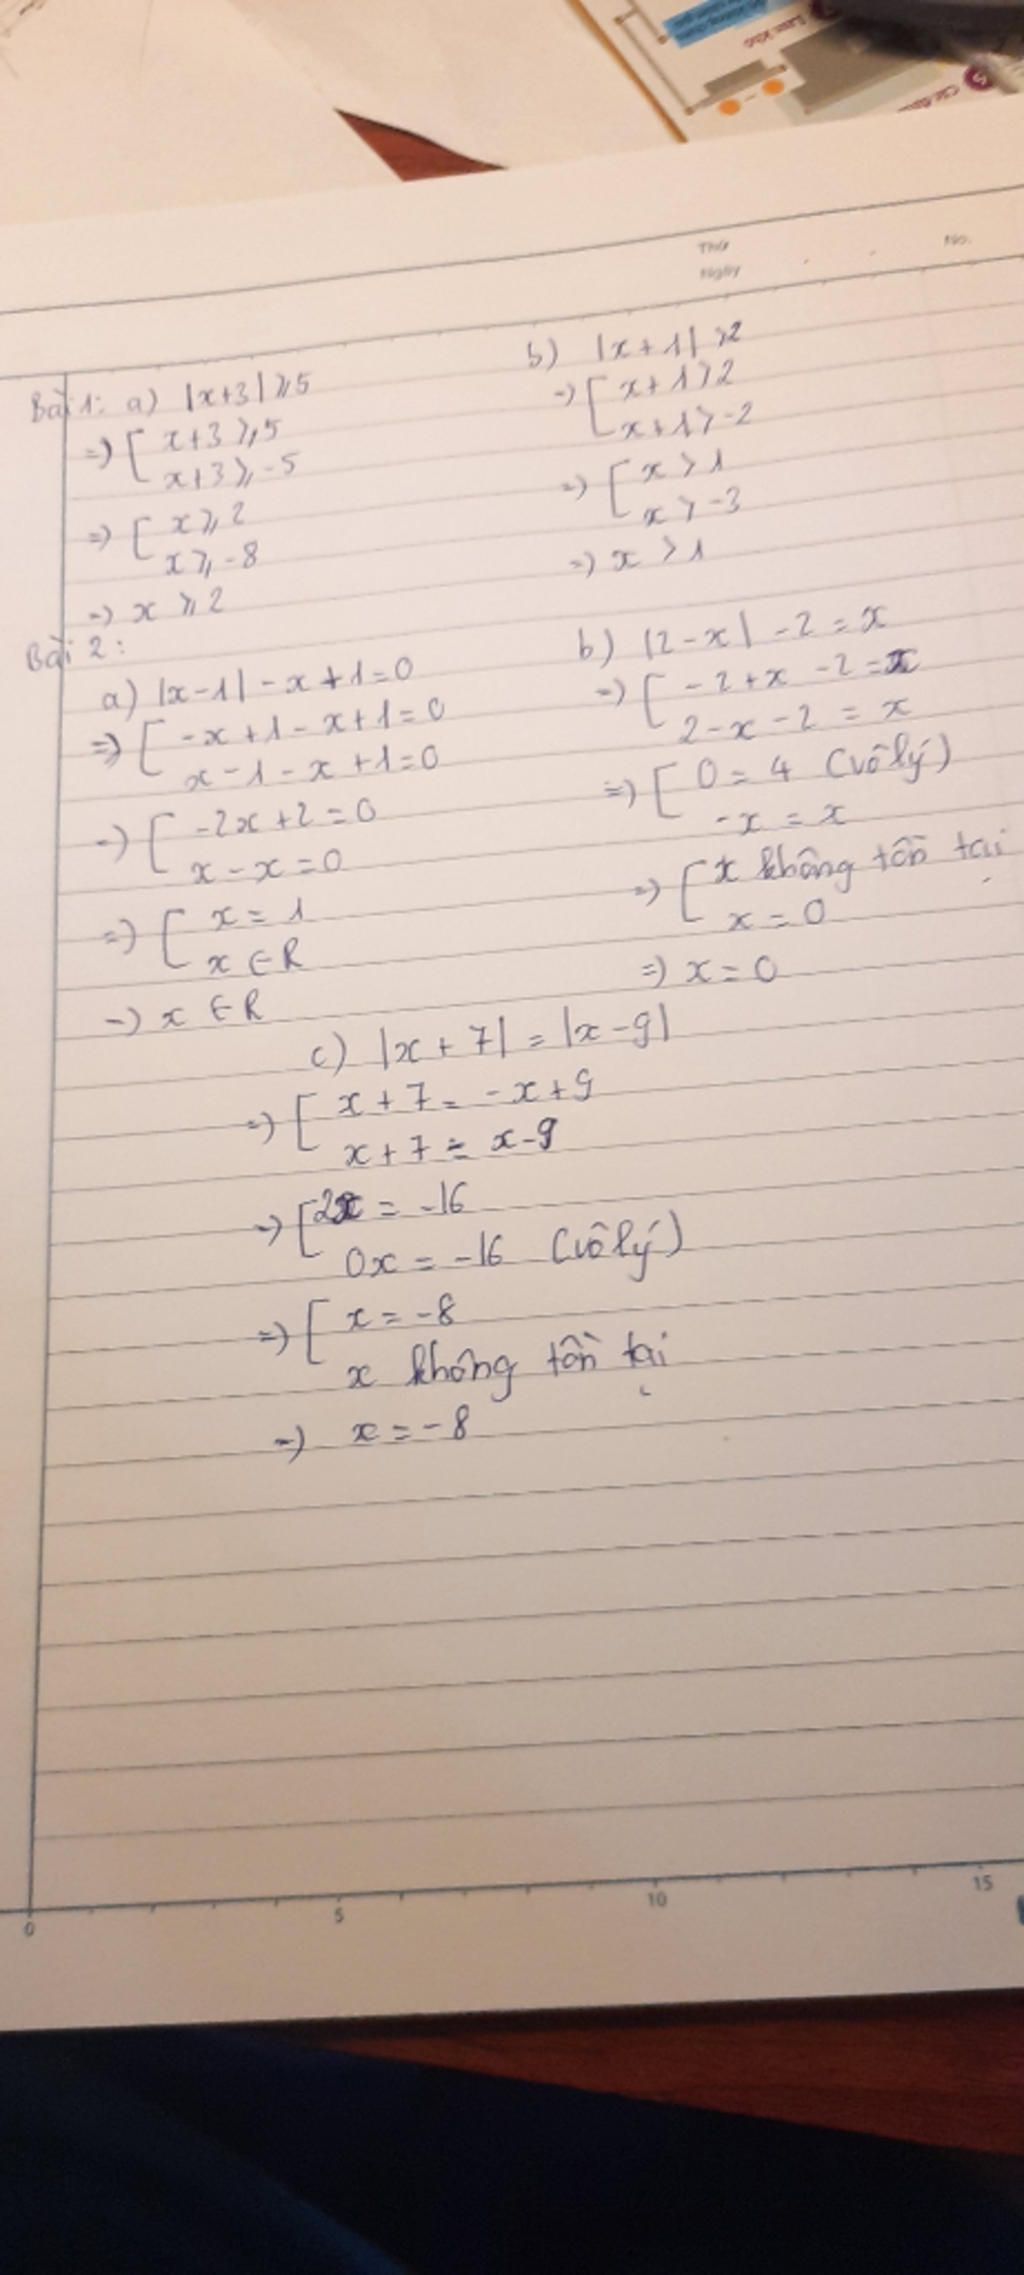 Thứ
Ngày
No.
Bài 1: a) |x+3| ⩾ 5
=> [ x+3 ⩾ 5
x+3 ⩾ -5
=> [ x ⩾ 2
x ⩾ -8
=> x ⩾ 2
b) |x+1| > 2
=> [ x+1 > 2
x+1 > -2
=> [ x > 1
x > -3
=> x > 1
Bài 2:
a) |x-1| - x + 1 = 0
=> [ -x + 1 - x + 1 = 0
x - 1 - x + 1 = 0
=> [ -2x + 2 = 0
x - x = 0
=> [ x = 1
x ∈ R
=> x ∈ R
b) |2 - x| - 2 = x
=> [ -2 + x - 2 = x
2 - x - 2 = x
=> [ 0 = 4 (vô lý)
-x = x
=> [ x không tồn tại
x = 0
=> x = 0
c) |x + 7| = |x - 9|
=> [ x + 7 = -x + 9
x + 7 = x - 9
=> [ 2x = -16
0x = -16 (vô lý)
=> [ x = -8
x không tồn tại
=> x = -8
0 5 10 15